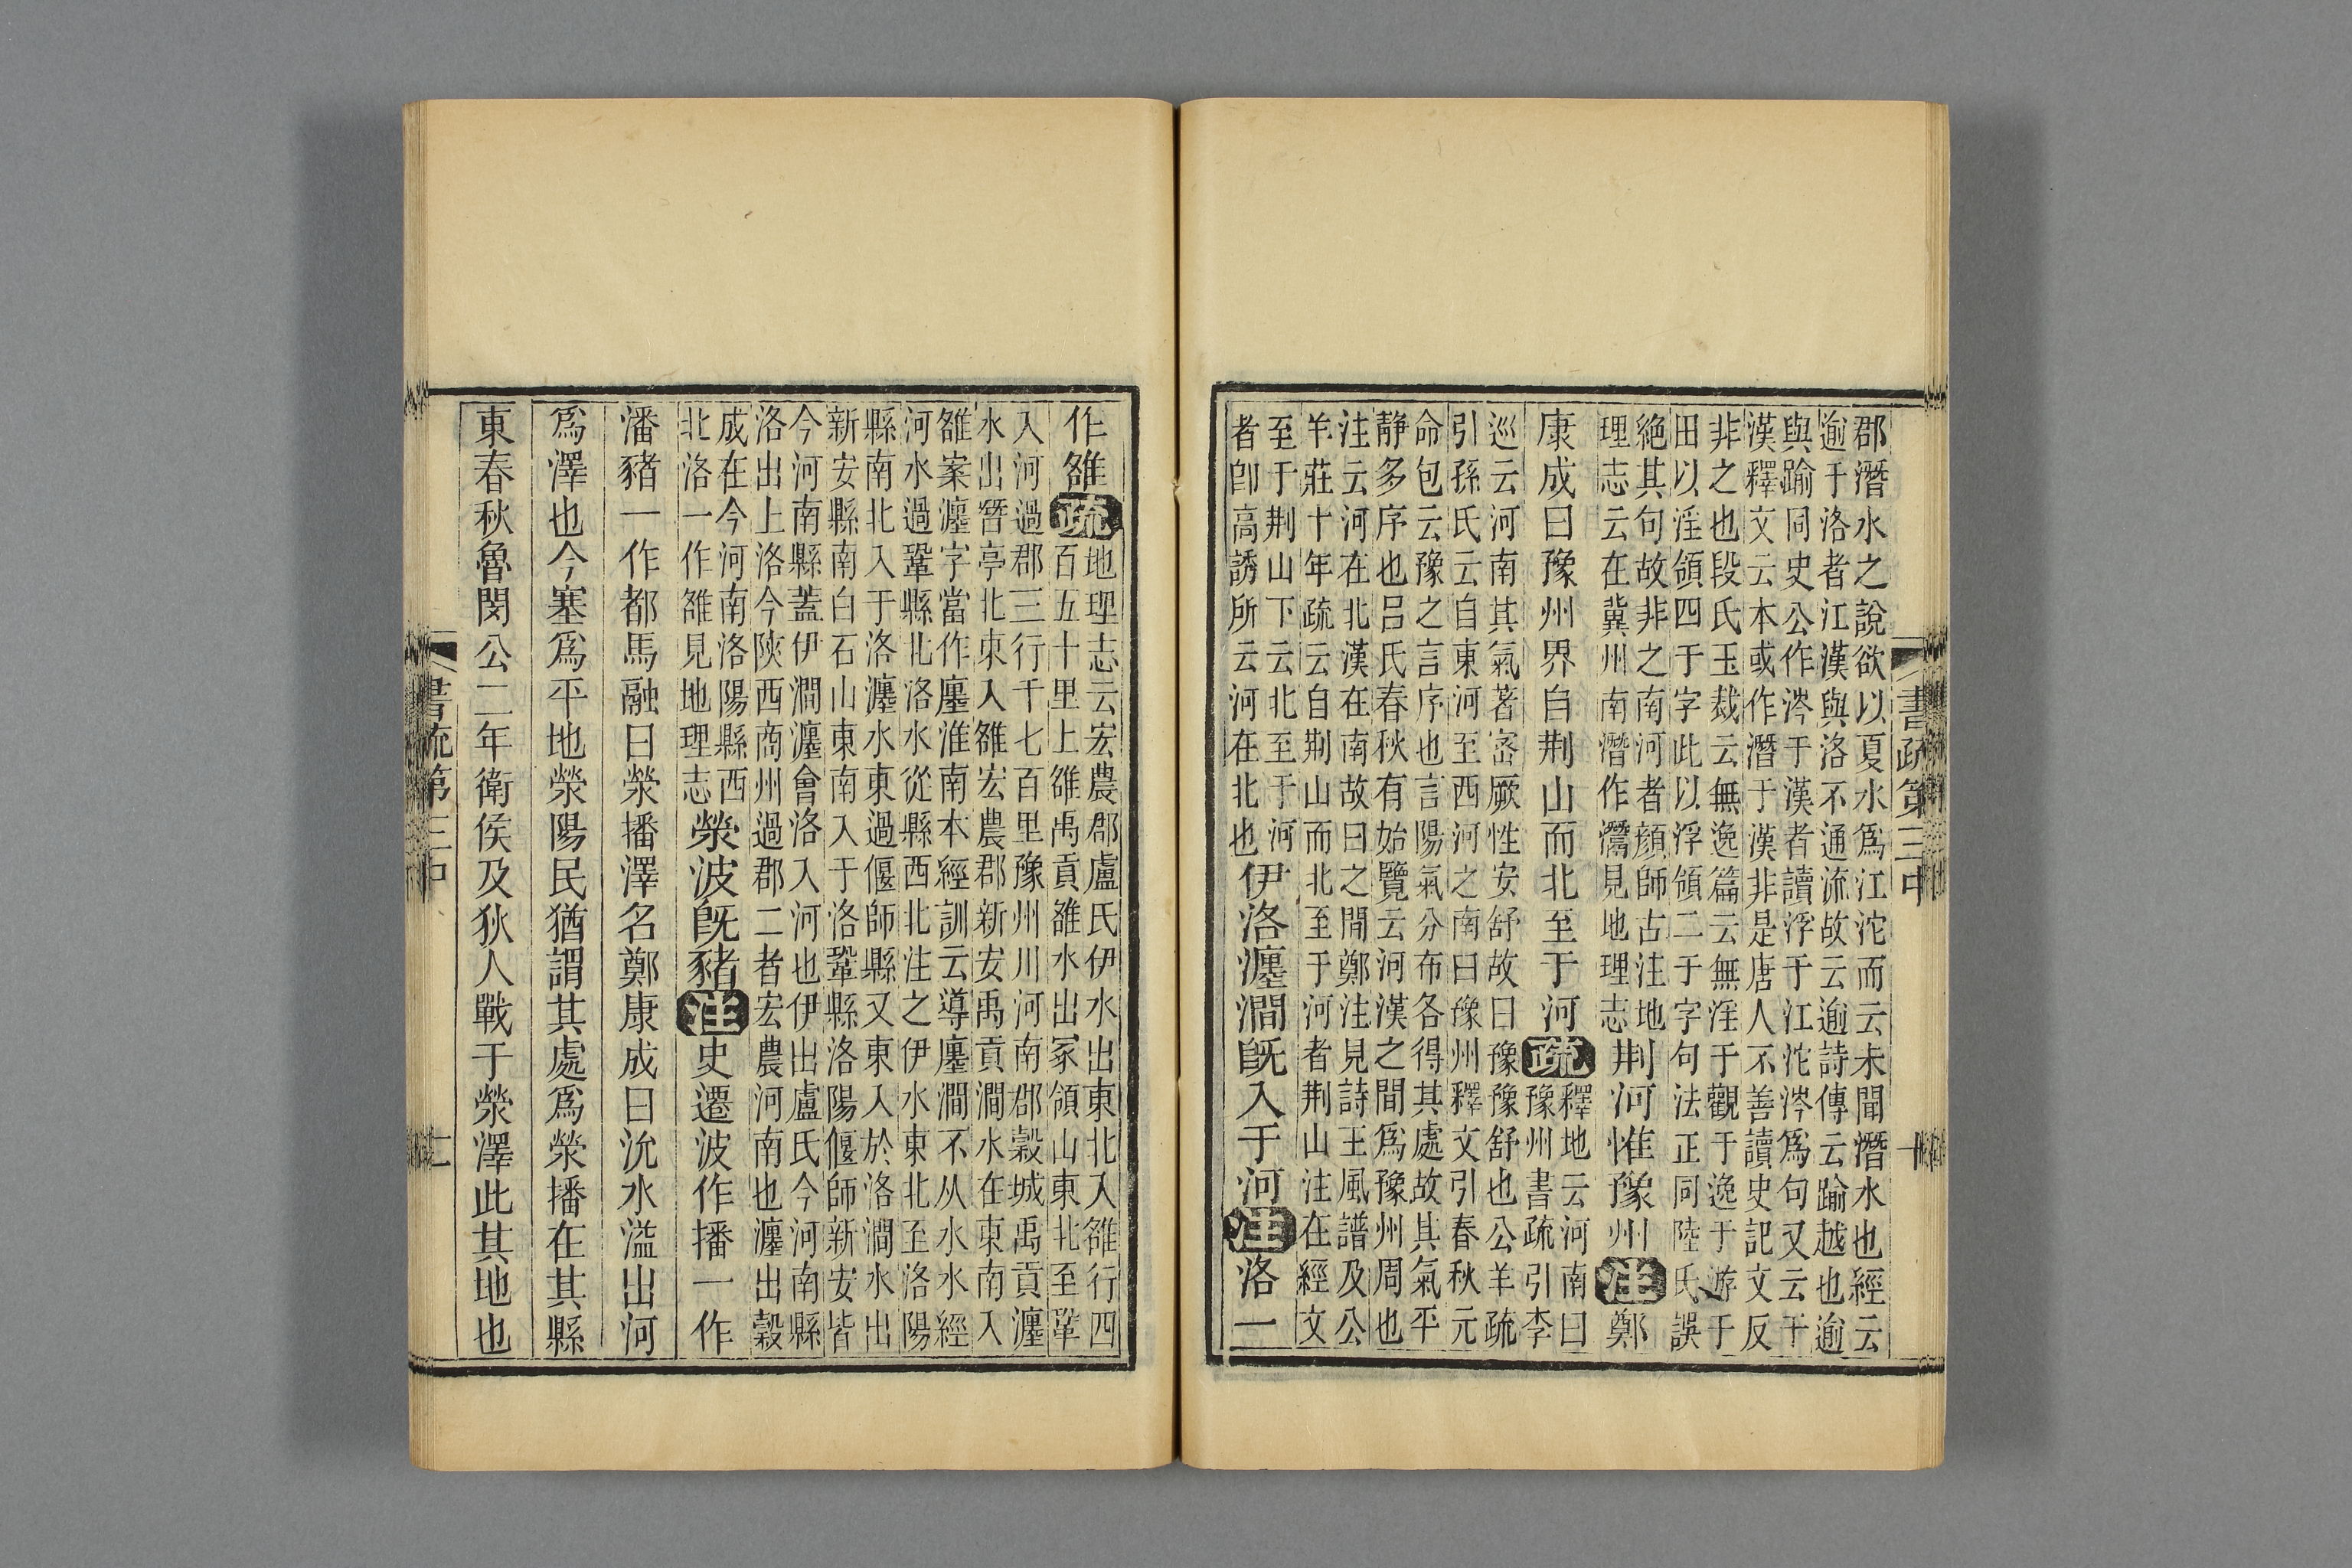 郡潛水之說欲以夏水爲江沱而云未聞潛水也經云
逾于洛者江漢與洛不通流故云逾詩傳云踰越也逾
與踰同史公作涔于漢者讀浮于江沱涔爲句又云于
漢釋文云本或作潛于漢非是唐人不善讀史記文反
非之也段氏玉裁云無逸篇云無淫于觀于逸于游于
田以淫領四于字此以浮領二于字句法正同陸氏誤
絕其句故非之南河者顏師古注地
理志云在冀州南潛作灊見地理志
荆河惟豫州注鄭
康成曰豫州界自荆山而北至于河疏
釋地云河南曰
豫州書疏引李
巡云河南其氣著密厥性安舒故曰豫豫舒也公羊疏
引孫氏云自東河至西河之南曰豫州釋文引春秋元
命包云豫之言序也言陽氣分布各得其處故其氣平
靜多序也呂氏春秋有始覽云河漢之間爲豫州周也
注云河在北漢在南故曰之間鄭注見詩王風譜及公
羊莊十年疏云自荆山而北至于河者荆山注在經文
至于荆山下云北至于河
者卽高誘所云河在北也
伊洛瀍澗旣入于河注洛一
書疏第三中
十
作雒疏
地理志云宏農郡盧氏伊水出東北入雒行四
百五十里上雒禹貢雒水出冢領山東北至鞏
入河過郡三行千七百里豫州川河南郡穀城禹貢瀍
水出朁亭北東入雒宏農郡新安禹貢澗水在東南入
雒案瀍字當作廛淮南本經訓云導廛澗不从水水經
河水過鞏縣北洛水從縣西北注之伊水東北至洛陽
縣南北入于洛瀍水東過偃師縣又東入於洛澗水出
新安縣南白石山東南入于洛鞏縣洛陽偃師新安皆
今河南縣蓋伊澗瀍會洛入河也伊出盧氏今河南縣
洛出上洛今陝西商州過郡二者宏農河南也瀍出穀
成在今河南洛陽縣西
北洛一作雒見地理志
滎波旣豬注史遷波作播一作
潘豬一作都馬融曰滎播澤名鄭康成曰沇水溢出河
爲澤也今塞爲平地滎陽民猶謂其處爲滎播在其縣
東春秋魯閔公二年衛侯及狄人戰于滎澤此其地也
書疏第三中